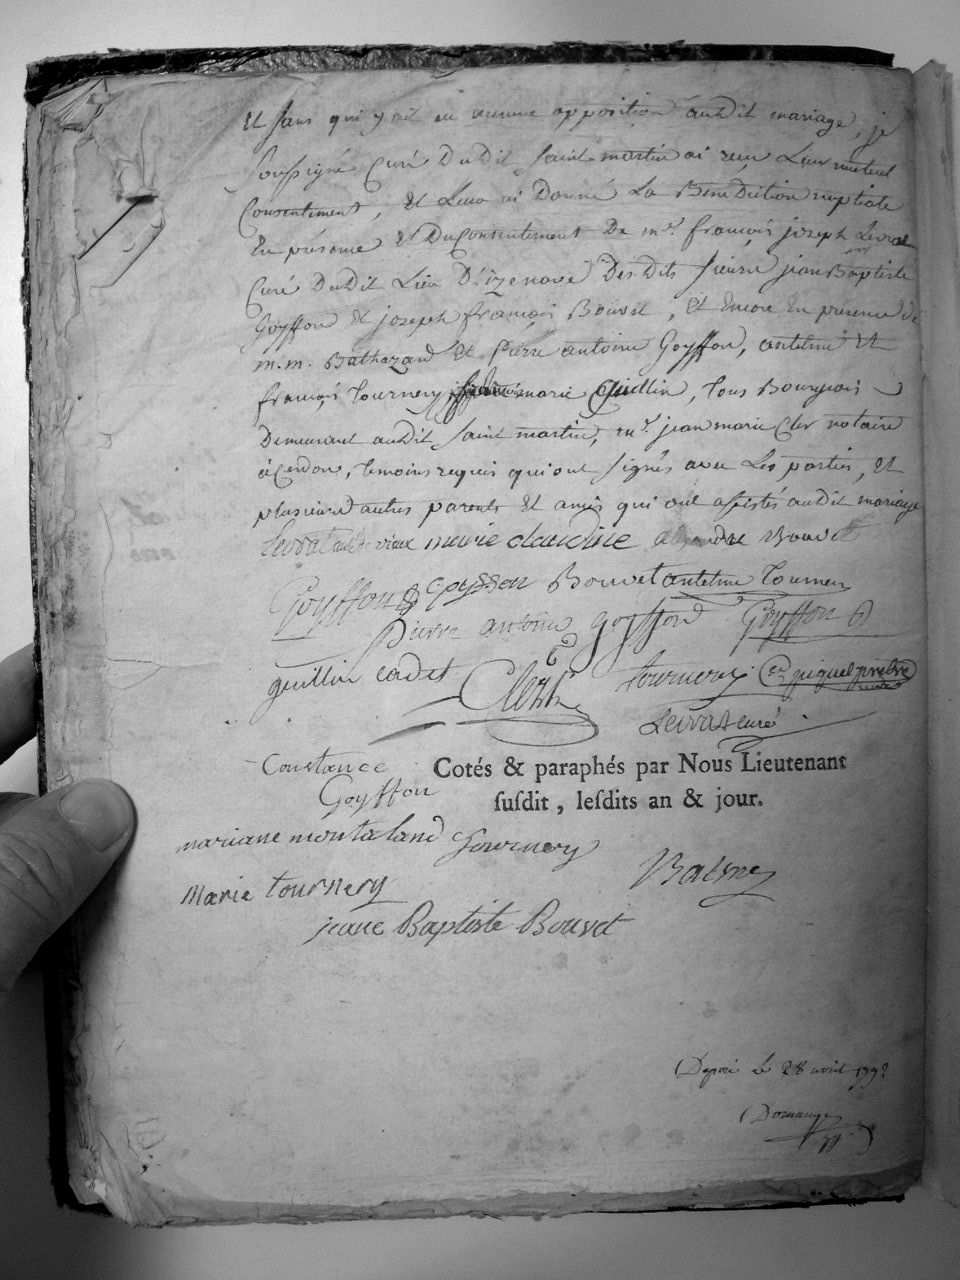 et sans qu'il y ait eu aucune opposition audit mariage, je
soussigné Curé dudit Saint-martin ai reçu Leur mutuel
Consentement, et Leur ai Donné La Benediction nuptiale
En présence et Du Consentement De mr. françois joseph Levrat
Curé dudit Lieu D'izenave Desdits sieurs jean Baptiste
Goyffon et joseph françois Bouvet, et Encore En présence de
m.m. Balthazard et Pierre antoine Goyffon, antelme et
françois Tournery marie Guillin, tous Bourgeois
Demeurant audit Saint martin, mr. jean marie Cler notaire
à Cerdon, témoins requis qui ont signés avec Les parties, et
plusieurs autres parents et amis qui ont assistés audit mariage
marie claudine Bouvet
Goyffon Goyffon Bouvet antelme Tournery
Pierre antoine Goyffon Goyffon
guillin cadet Clert Tournery piquel prêtre
Levrat curé
Constance Cotés & paraphés par Nous Lieutenant
Goyffon susdit, lesdits an & jour.
mariane montaland Tournery
Marie Tournery
jeane Baptiste Bouvet
Déposé Le 28 avril 1792